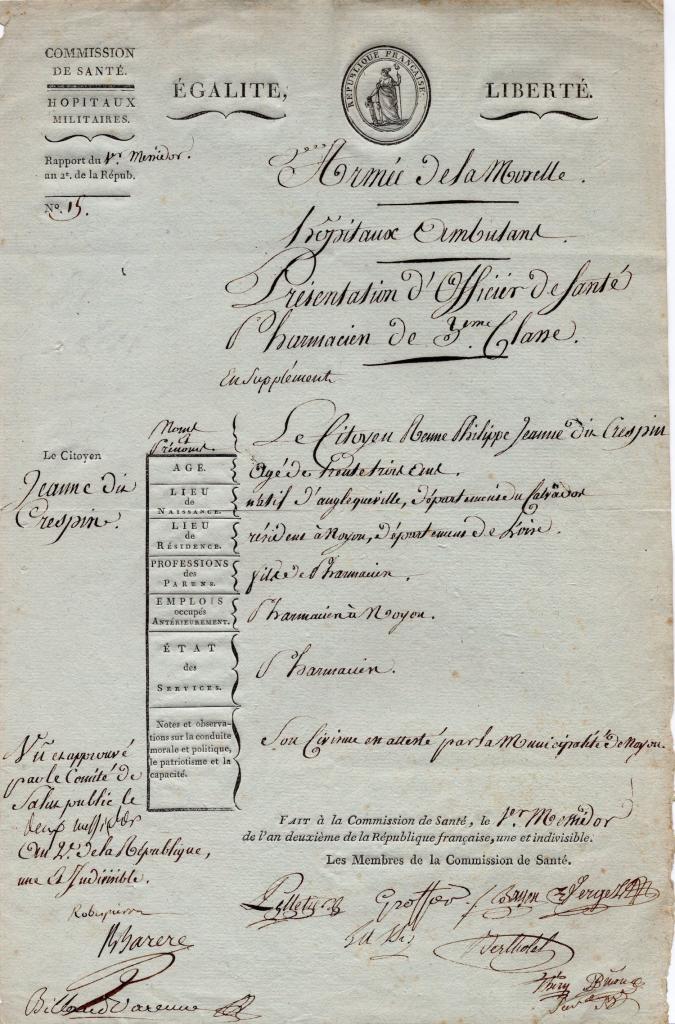 COMMISSION
DE SANTÉ.
HOPITAUX
MILITAIRES.
ÉGALITE,
RÉPUBLIQUE FRANÇAISE.
LIBERTÉ.
Rapport du 1er. Messidor.
an 2e. de la Répub.
No. 15.
Armée de la Moselle.
hôpitaux Ambulans.
Présentation d'Officier de Santé
Pharmacien de 3eme. Classe.
En Supplément
Noms et Prénoms.
Le Citoyen Renne Philippe Jeanne du Crespin
Le Citoyen
Jeanne du
Crespin.
AGE.
Agé de trente trois ans.
LIEU
de
NAISSANCE.
natif d'angleqeville, département du Calvados
LIEU
de
RÉSIDENCE.
résident à Noyon, département de L'oise.
PROFESSIONS
des
PARENS.
fils de Pharmacien.
EMPLOIS
occupés
ANTÉRIEUREMENT.
Pharmacien à Noyon.
ÉTAT
des
SERVICES.
Pharmacien.
Notes et observa-
tions sur la conduite
morale et politique,
le patriotisme et la
capacité.
Son Civisme est attesté par la Municipalité de Noyon.
Vu et approuvé
par le Comité de
Salut public le
deux messidor
An 2e. de la République,
une et Indivisible.
FAIT à la Commission de Santé, le 1er Messidor
de l'an deuxième de la République française, une et indivisible.
Les Membres de la Commission de Santé.
Robespierre
B Barere
Billaud Varenne
Pelletier
Groffier
Bayen
Verger
Berthollet
Thery